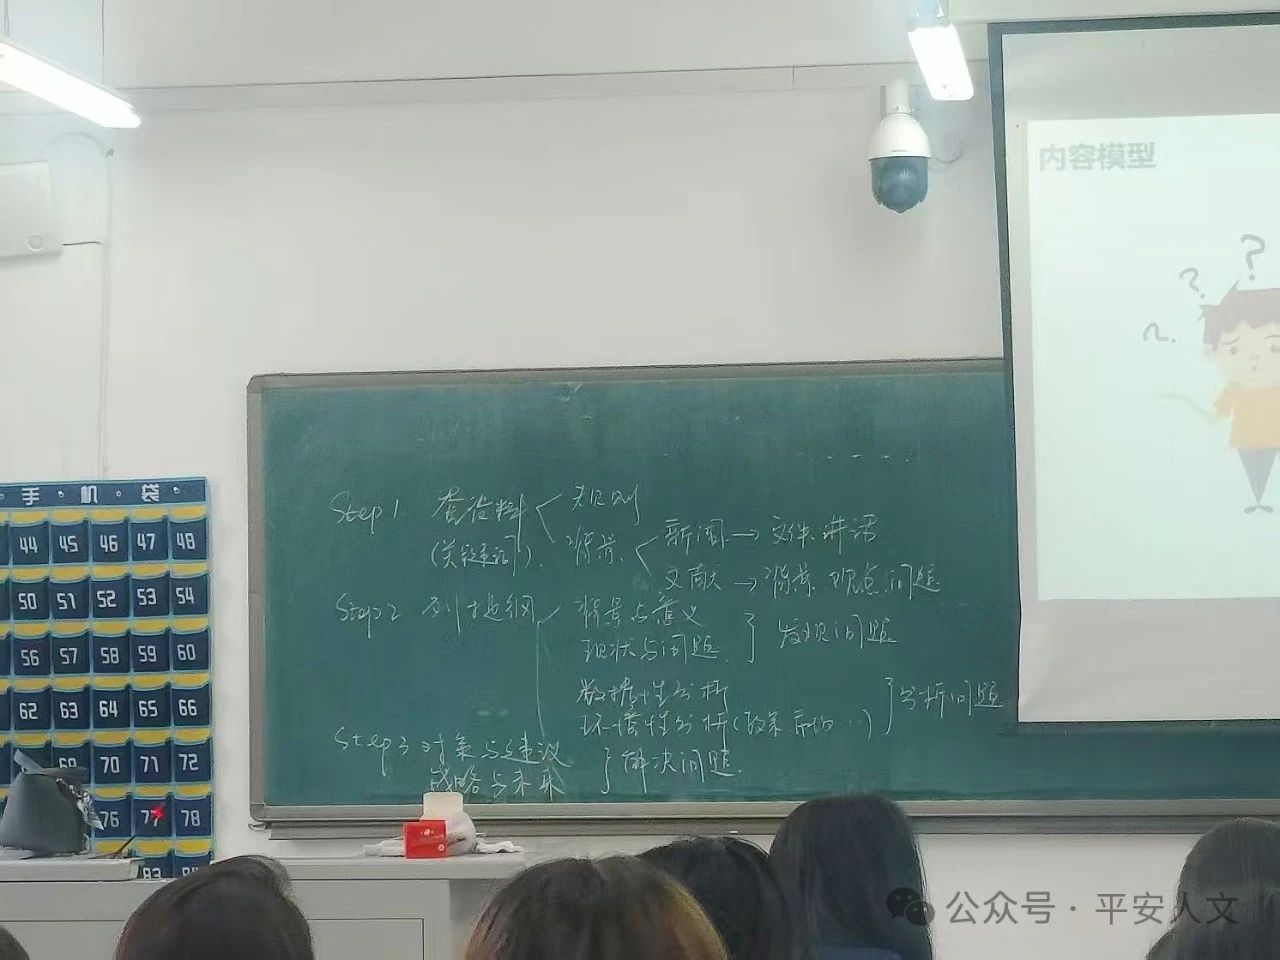 内容模型
?
?
?
手·机·袋
44 45 46 47 48
50 51 52 53 54
56 57 58 59 60
62 63 64 65 66
69 70 71 72
76 77 78
83 84
Step 1 查资料
(关键词)
背景
新闻→文件.讲话
文献→背景 观点 问题
Step 2 列提纲
背景与意义
现状与问题
发现问题
数据性分析
环境性分析(政策 市场…)
分析问题
Step 3 对策与建议
战略与未来
解决问题
公众号·平安人文